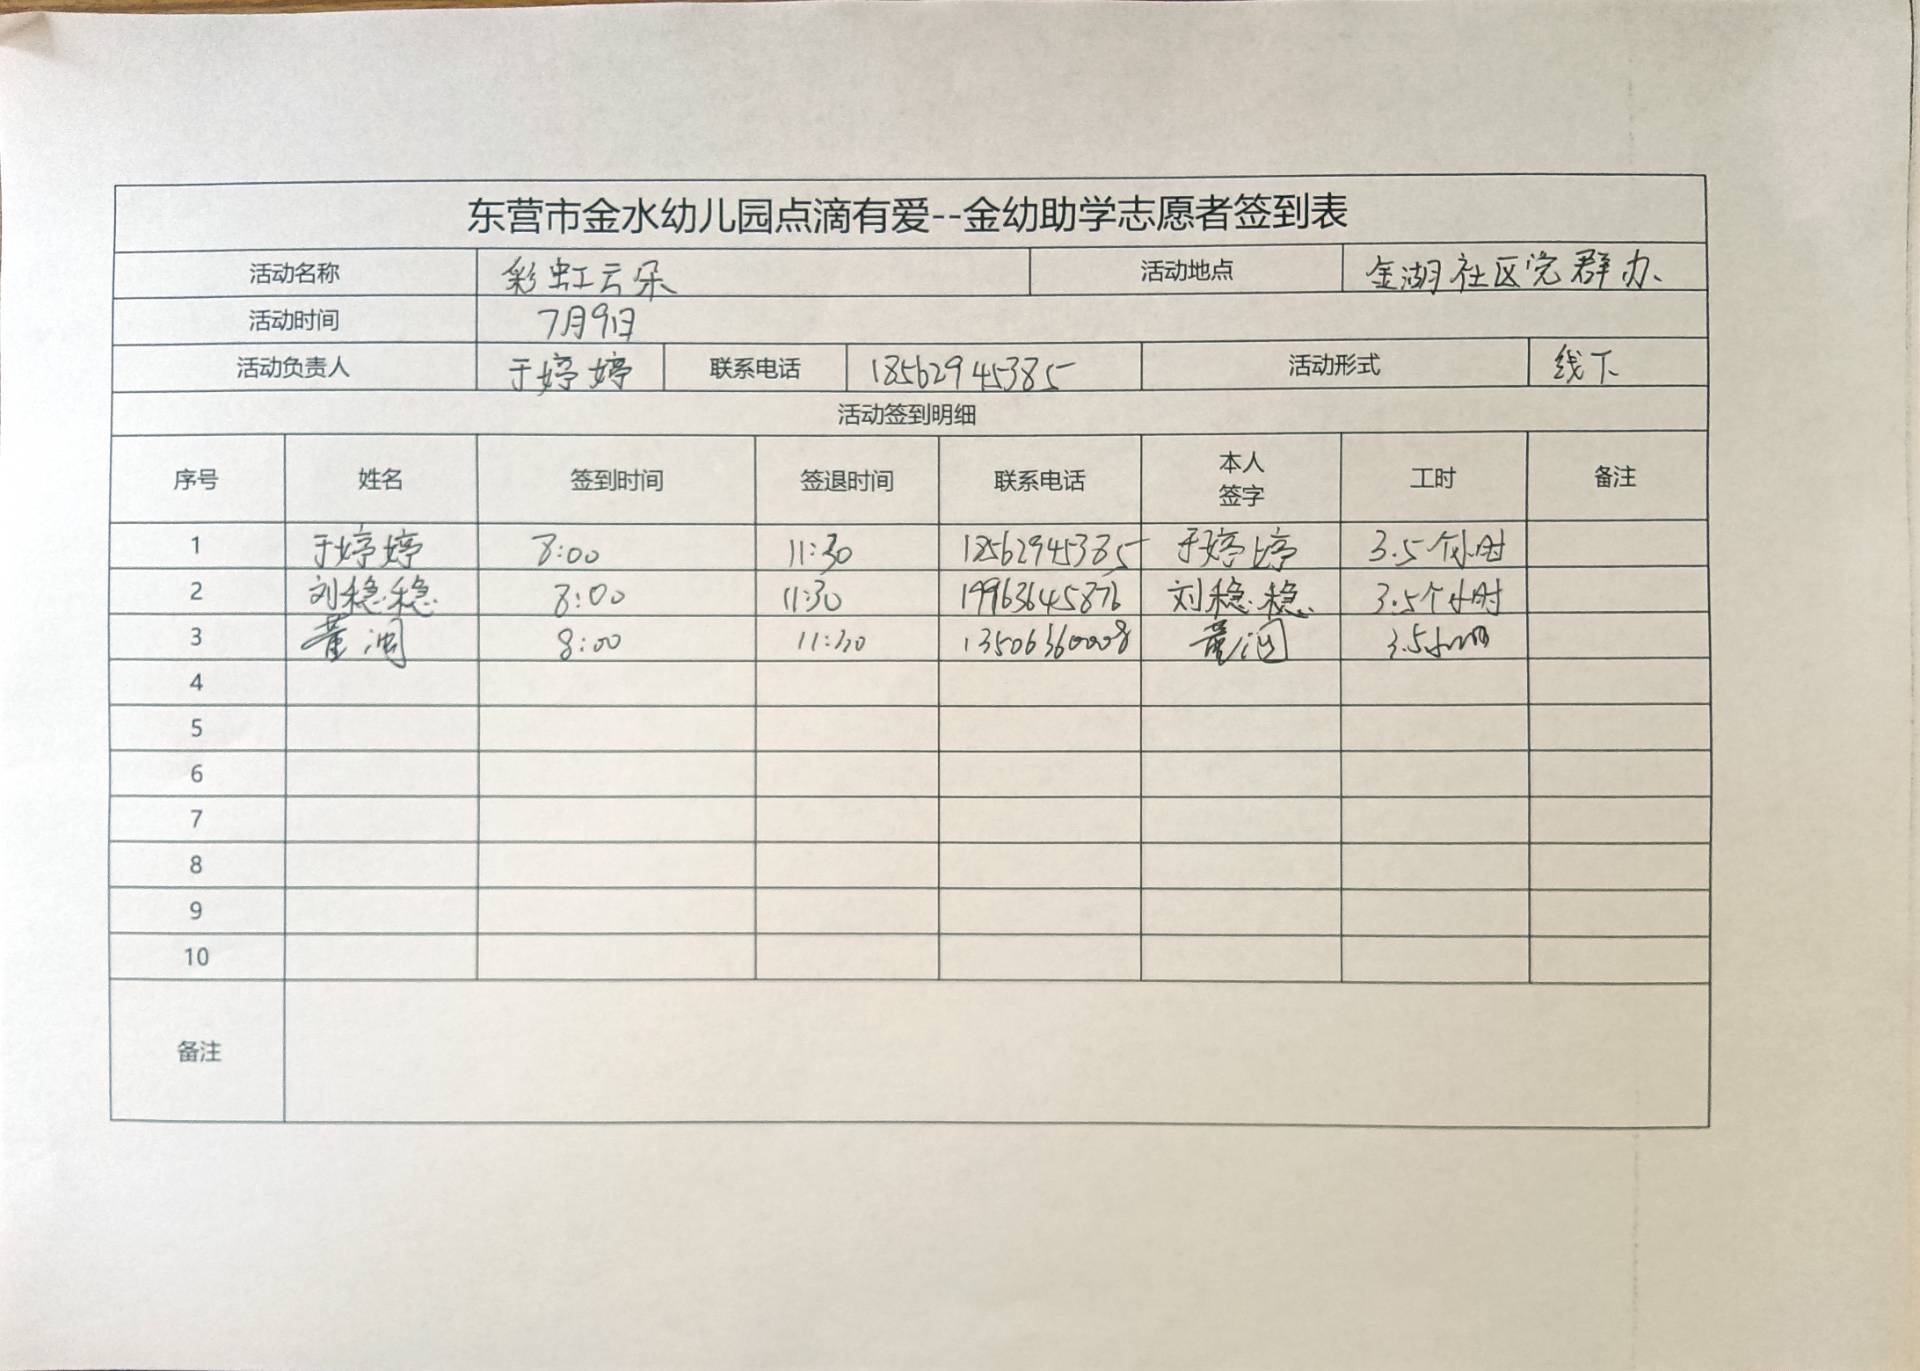 东营市金水幼儿园点滴有爱--金幼助学志愿者签到表
活动名称 彩虹云朵 活动地点 金湖社区党群办
活动时间 7月9日
活动负责人 于婷婷 联系电话 18562945385 活动形式 线下
活动签到明细
序号 姓名 签到时间 签退时间 联系电话 本人签字 工时 备注
1 于婷婷 8:00 11:30 18562945385 于婷婷 3.5个小时
2 刘稳稳 8:00 11:30 19963645876 刘稳稳 3.5个小时
3 董 8:00 11:30 13506360008 董 3.5小时
4
5
6
7
8
9
10
备注